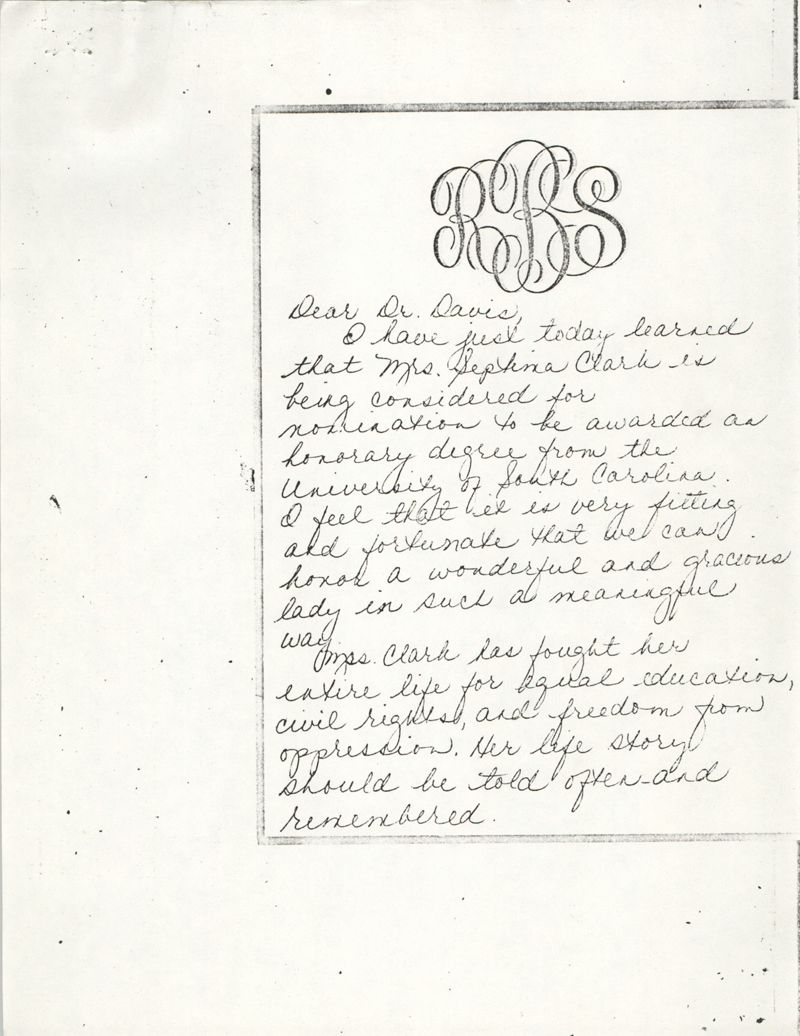 RBS
Dear Dr. Davis,
I have just today learned
that Mrs. Septima Clark is
being considered for
nomination to be awarded an
honorary degree from the
University of South Carolina.
I feel that it is very fitting
and fortunate that we can
honor a wonderful and gracious
lady in such a meaningful
way.
Mrs. Clark has fought her
entire life for equal education,
civil rights, and freedom from
oppression. Her life story
should be told often and
remembered.